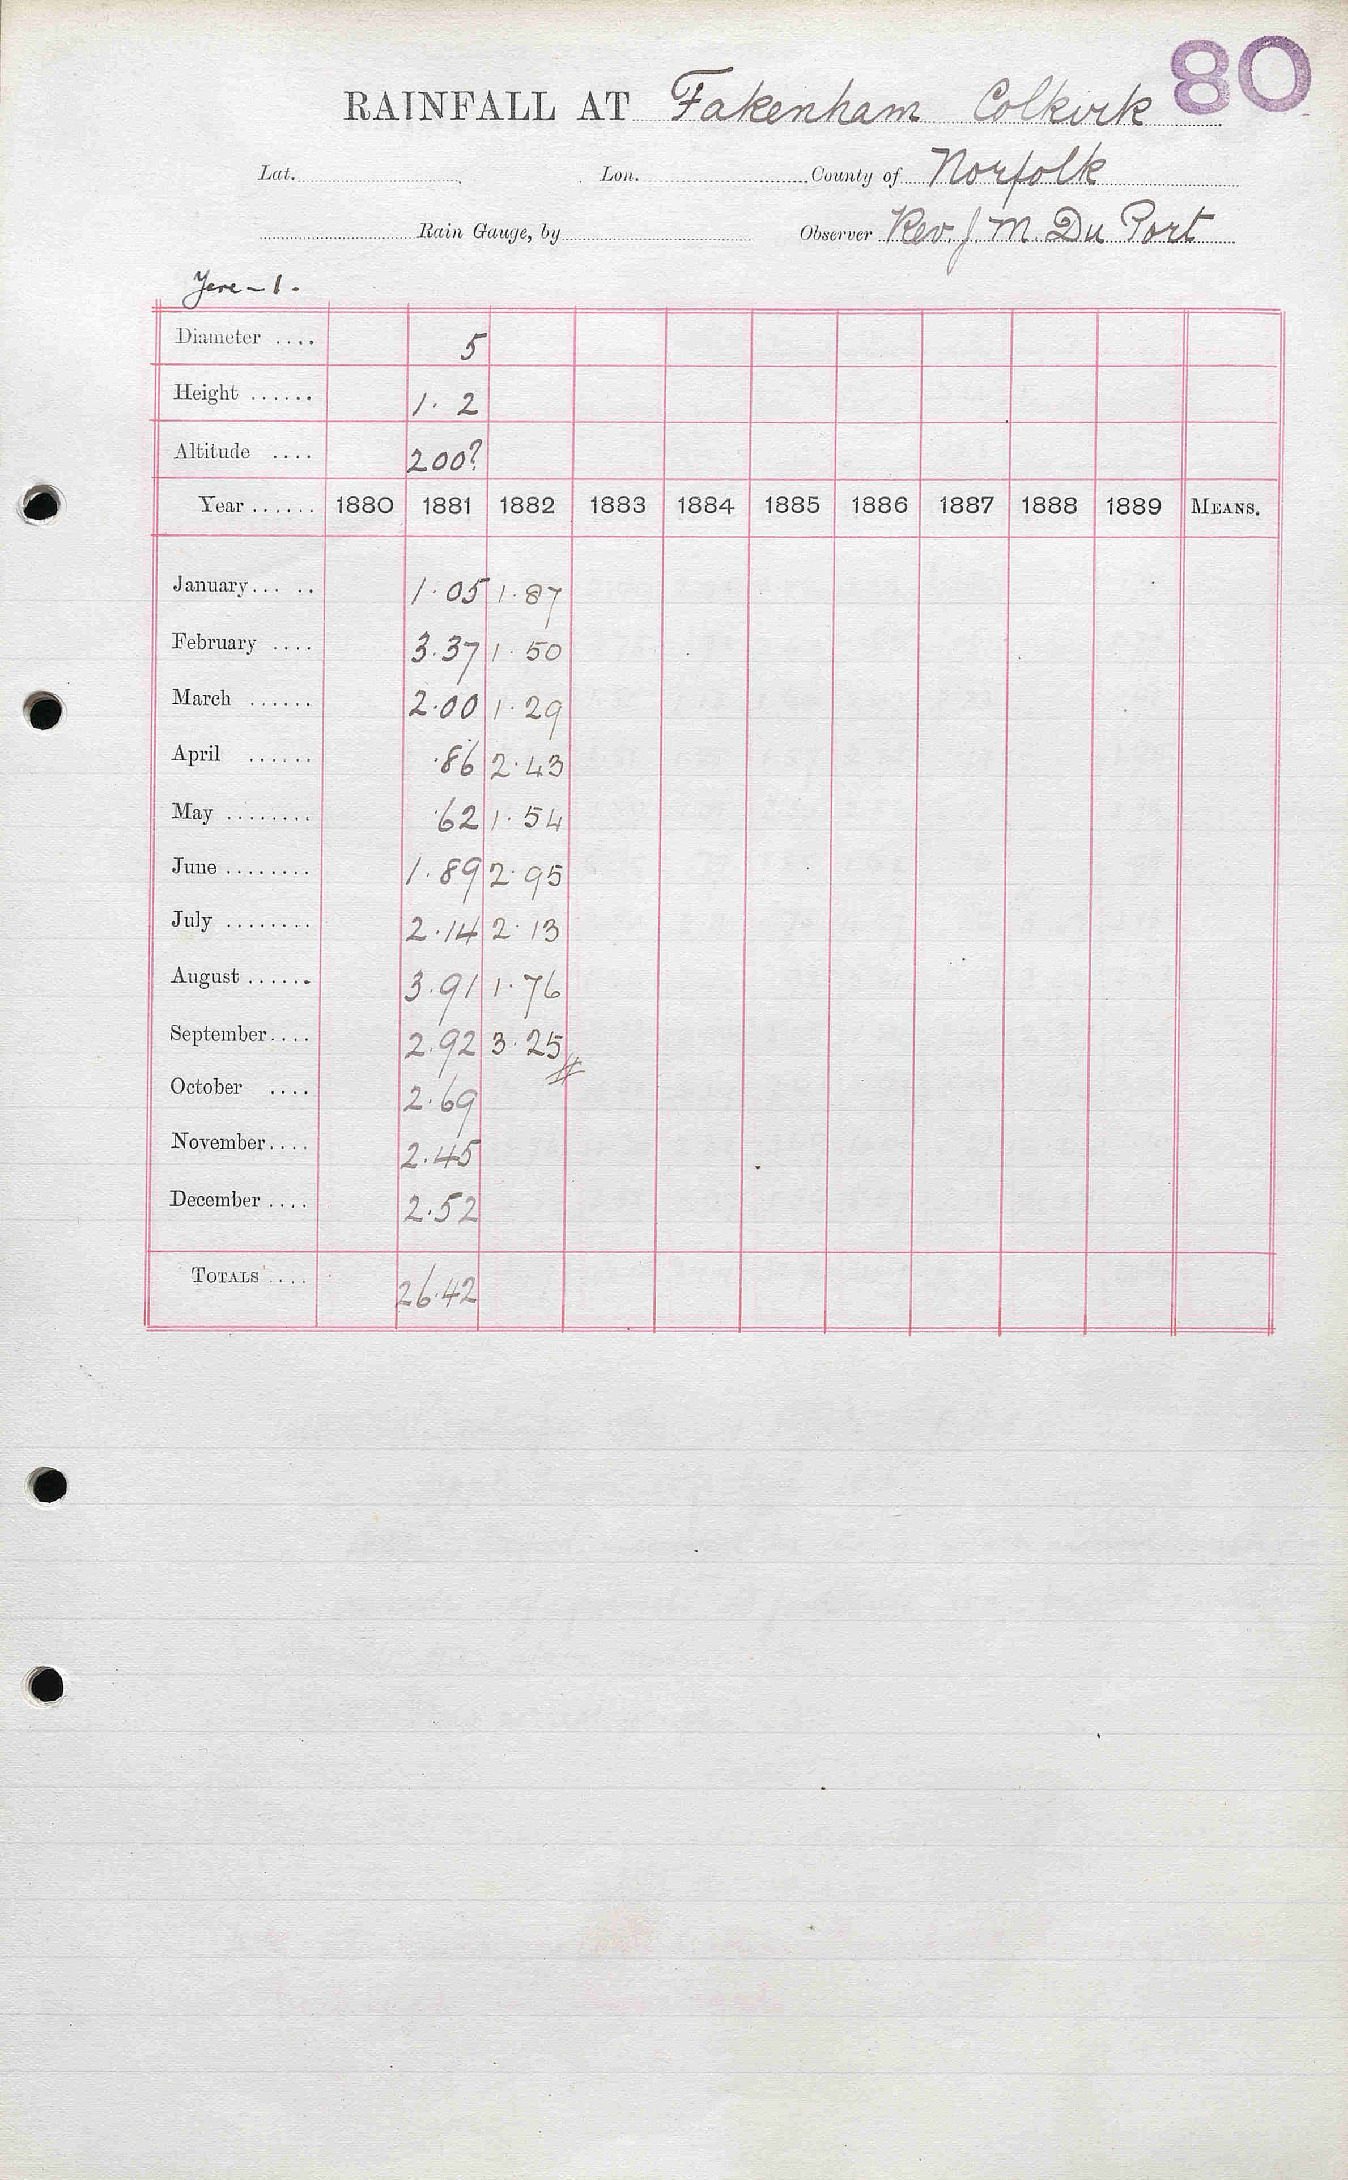 80
RAINFALL AT Fakenham Colkirk
Lat. Lon. County of Norfolk
Rain Gauge, by Observer Rev. J. M. Du Port
Diameter .... 5
Height ...... 1. 2
Altitude .... 200?
Year ...... 1880 1881 1882 1883 1884 1885 1886 1887 1888 1889 MEANS.
January... .. 1.05 1.87
February .... 3.37 1.50
March ...... 2.00 1.29
April ...... .86 2.43
May ........ .62 1.54
June ........ 1.89 2.95
July ........ 2.14 2.13
August ...... 3.91 1.76
September.... 2.92 3.25
October .... 2.69
November.... 2.45
December .... 2.52
TOTALS .... 26.42